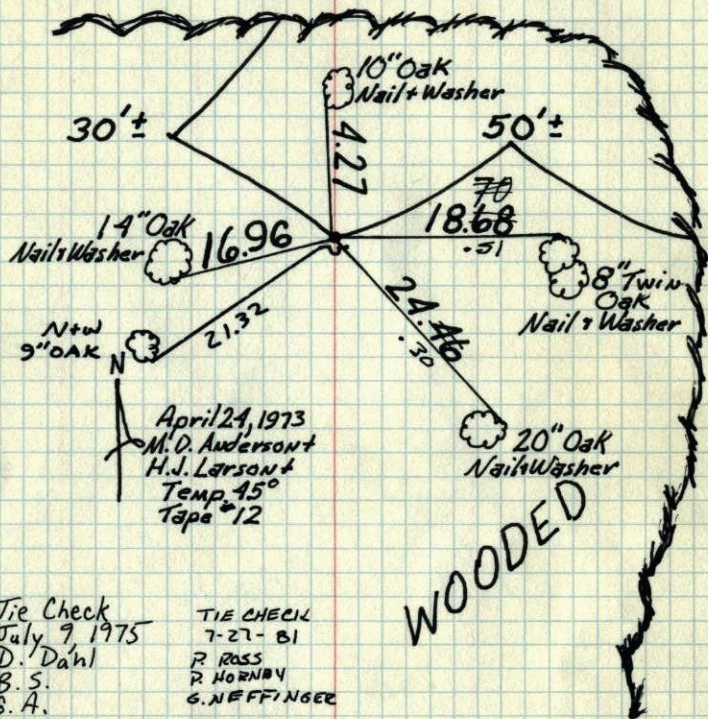 10" Oak
Nail + Washer
30'±
50'±
4.27
70
18.68
.51
14" Oak
Nail & Washer
16.96
8" Twin
Oak
Nail & Washer
24.46
.30
21.32
N+W
9" OAK
N
April 24, 1973
M.D. Anderson +
H.J. Larson +
Temp. 45°
Tape #12
20" Oak
Nail & Washer
WOODED
Tie Check
July 9, 1975
D. Dahl
B. S.
S. A.
TIE CHECK
7-27-81
P. ROSS
P. HORNBY
G. NEFFINGER